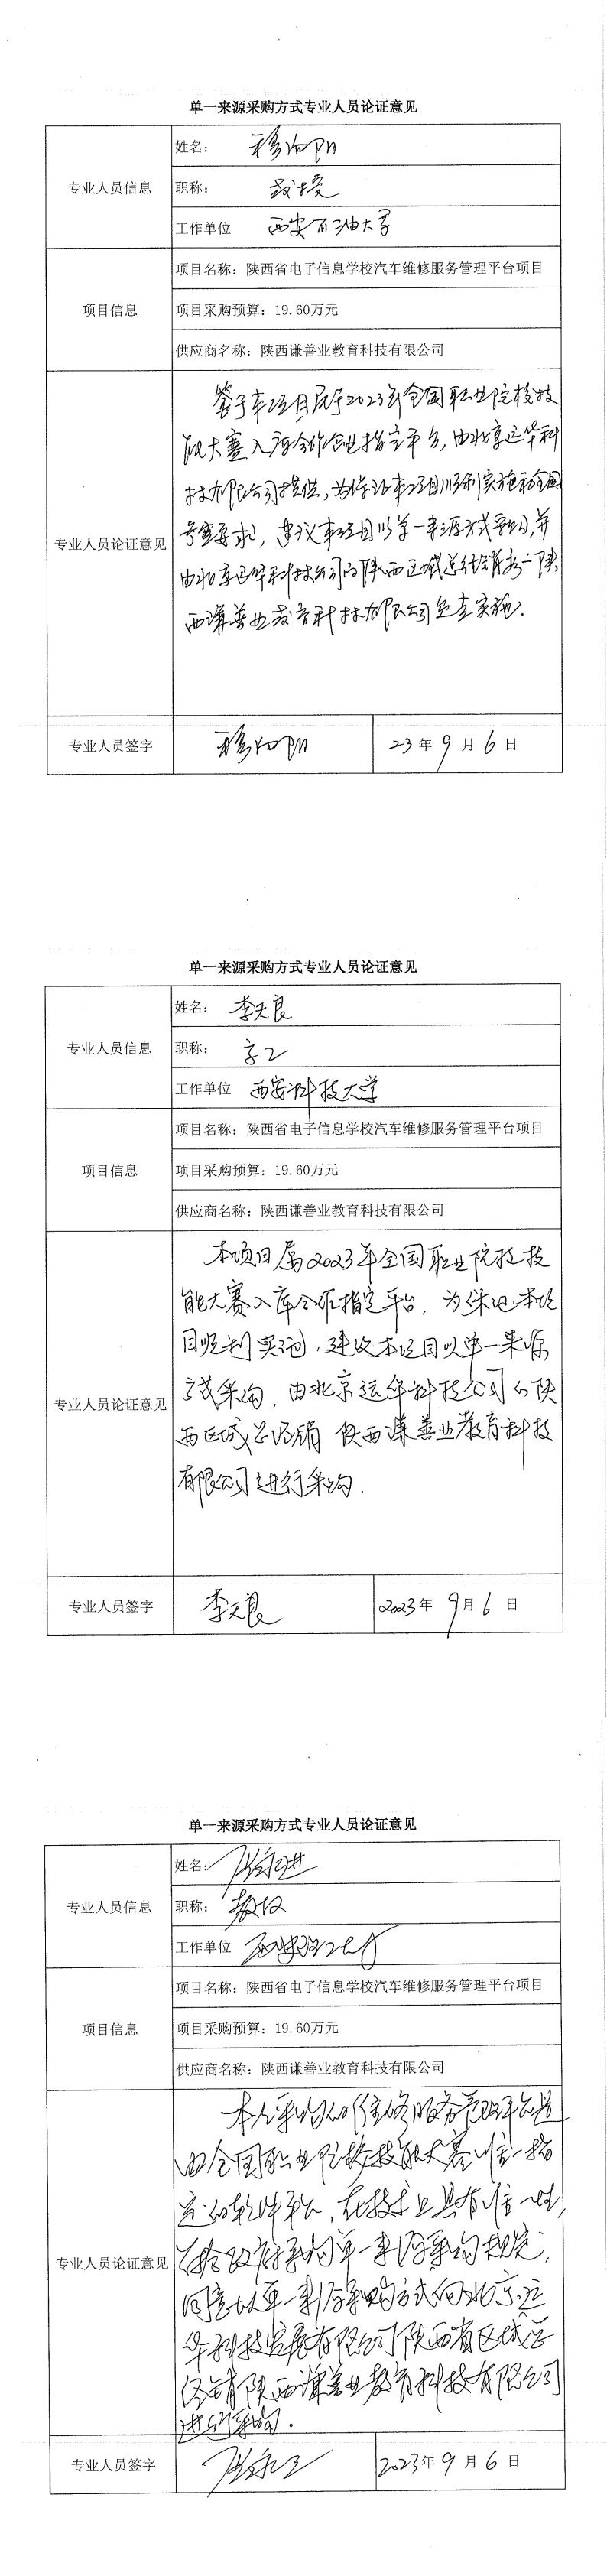 单一来源采购方式专业人员论证意见
专业人员信息
姓名：穆向阳
职称：教授
工作单位 西安石油大学
项目信息
项目名称：陕西省电子信息学校汽车维修服务管理平台项目
项目采购预算：19.60万元
供应商名称：陕西谦善业教育科技有限公司
专业人员论证意见
鉴于本项目属于2023年全国职业院校技
能大赛入库合作企业指定平台，由北京运华科
技有限公司提供，为保证本项目顺利实施和全国
竞赛要求，建议本项目以单一来源方式采购，并
由北京运华科技公司的陕西区域总经销商一陕
西谦善业教育科技有限公司负责实施．
专业人员签字
穆向阳
23年9月6日
单一来源采购方式专业人员论证意见
专业人员信息
姓名：李天良
职称：高工
工作单位 西安科技大学
项目信息
项目名称：陕西省电子信息学校汽车维修服务管理平台项目
项目采购预算：19.60万元
供应商名称：陕西谦善业教育科技有限公司
专业人员论证意见
本项目属2023年全国职业院校技
能大赛入库合作指定平台，为保证本项
目顺利实施，建议本项目以单一来源
方式采购，由北京运华科技公司的陕
西区域总经销 陕西谦善业教育科技
有限公司进行采购．
专业人员签字
李天良
2023年9月6日
单一来源采购方式专业人员论证意见
专业人员信息
姓名：
职称：教授
工作单位 西安理工大学
项目信息
项目名称：陕西省电子信息学校汽车维修服务管理平台项目
项目采购预算：19.60万元
供应商名称：陕西谦善业教育科技有限公司
专业人员论证意见
本次采购的维修服务管理平台是
由全国职业院校技能大赛唯一指
定的软件平台，在技术上具有唯一性，
符合政府采购单一来源采购规定，
同意以单一来源采购方式向北京运
华科技发展有限公司陕西省区域总
经销陕西谦善业教育科技有限公司
进行采购．
专业人员签字
2023年9月6日